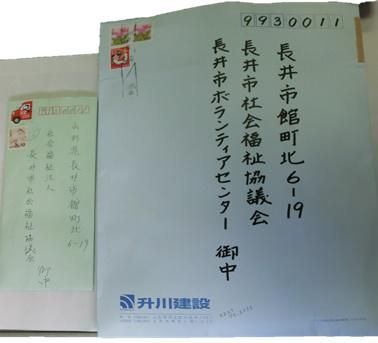 9930011
長井市館町北6-19
長井市社会福祉協議会
長井市ボランティアセンター 御中
升川建設
山形県長井市館町北
6-19
社会福祉法人
長井市社会福祉協議会
御中